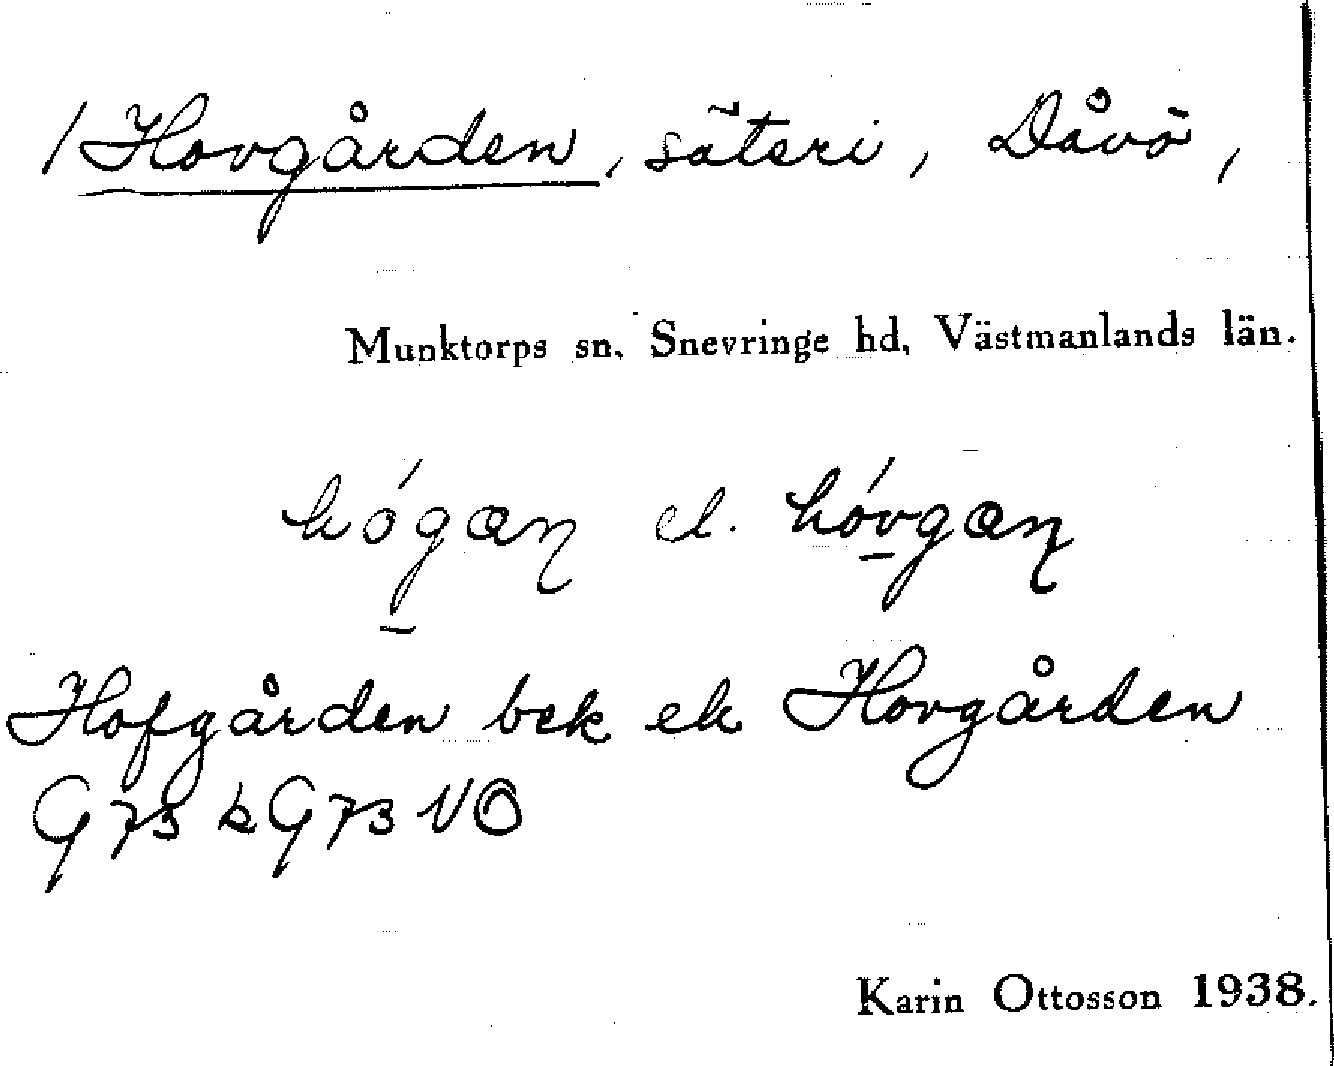 / Hovgården, säteri, Dåvö,
Munktorps sn, Snevringe hd, Västmanlands län.
hógaɳ el. hóvgaɳ
Hofgården bek ek Hovgården
G 73 k G 73 NO
Karin Ottosson 1938.